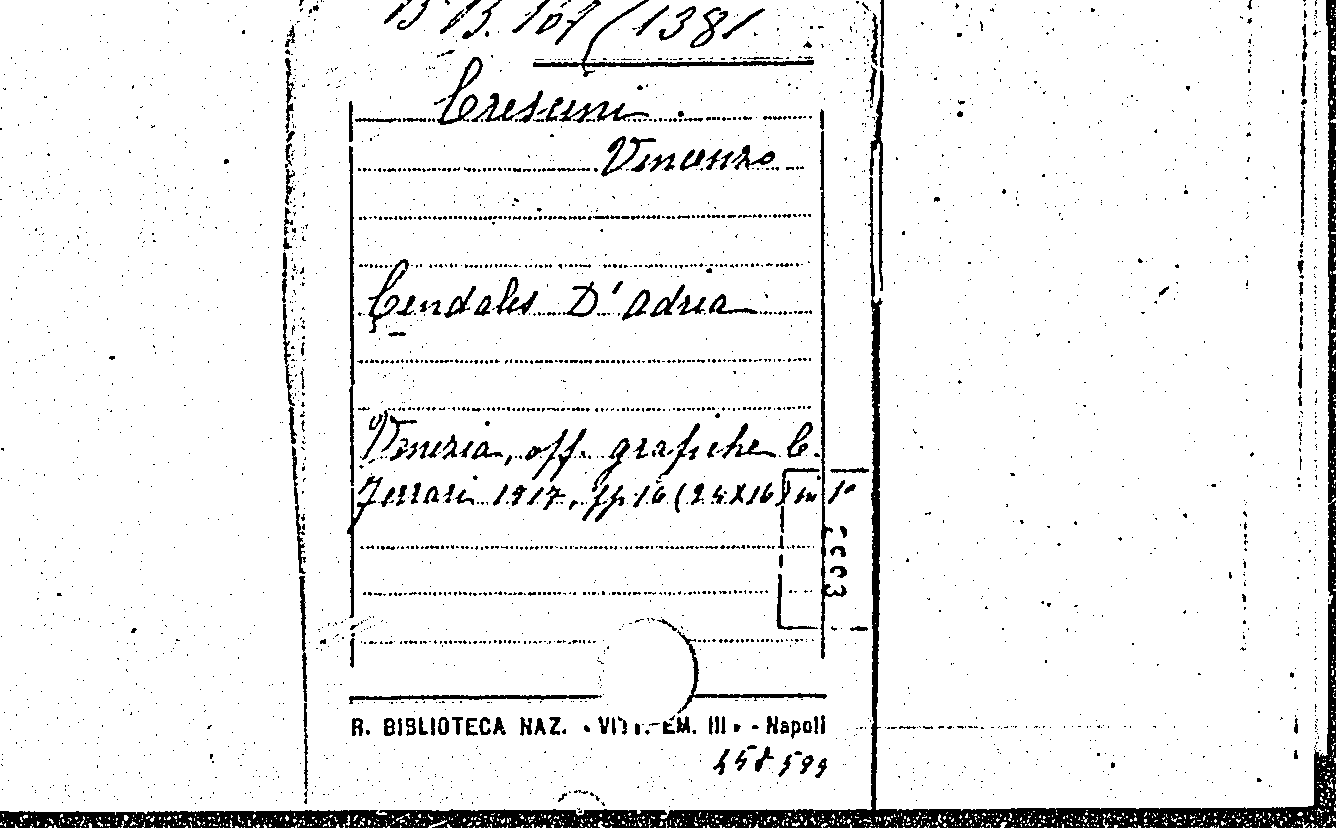 B. B. 107 / 1381.
Crescini.
Vincenzo
Çendales D'Adria
Venezia, off. grafiche C.
Ferrari 1917, pp 16 (24x16) in 1°
R. BIBLIOTECA NAZ. - VITT. EM. III - - Napoli